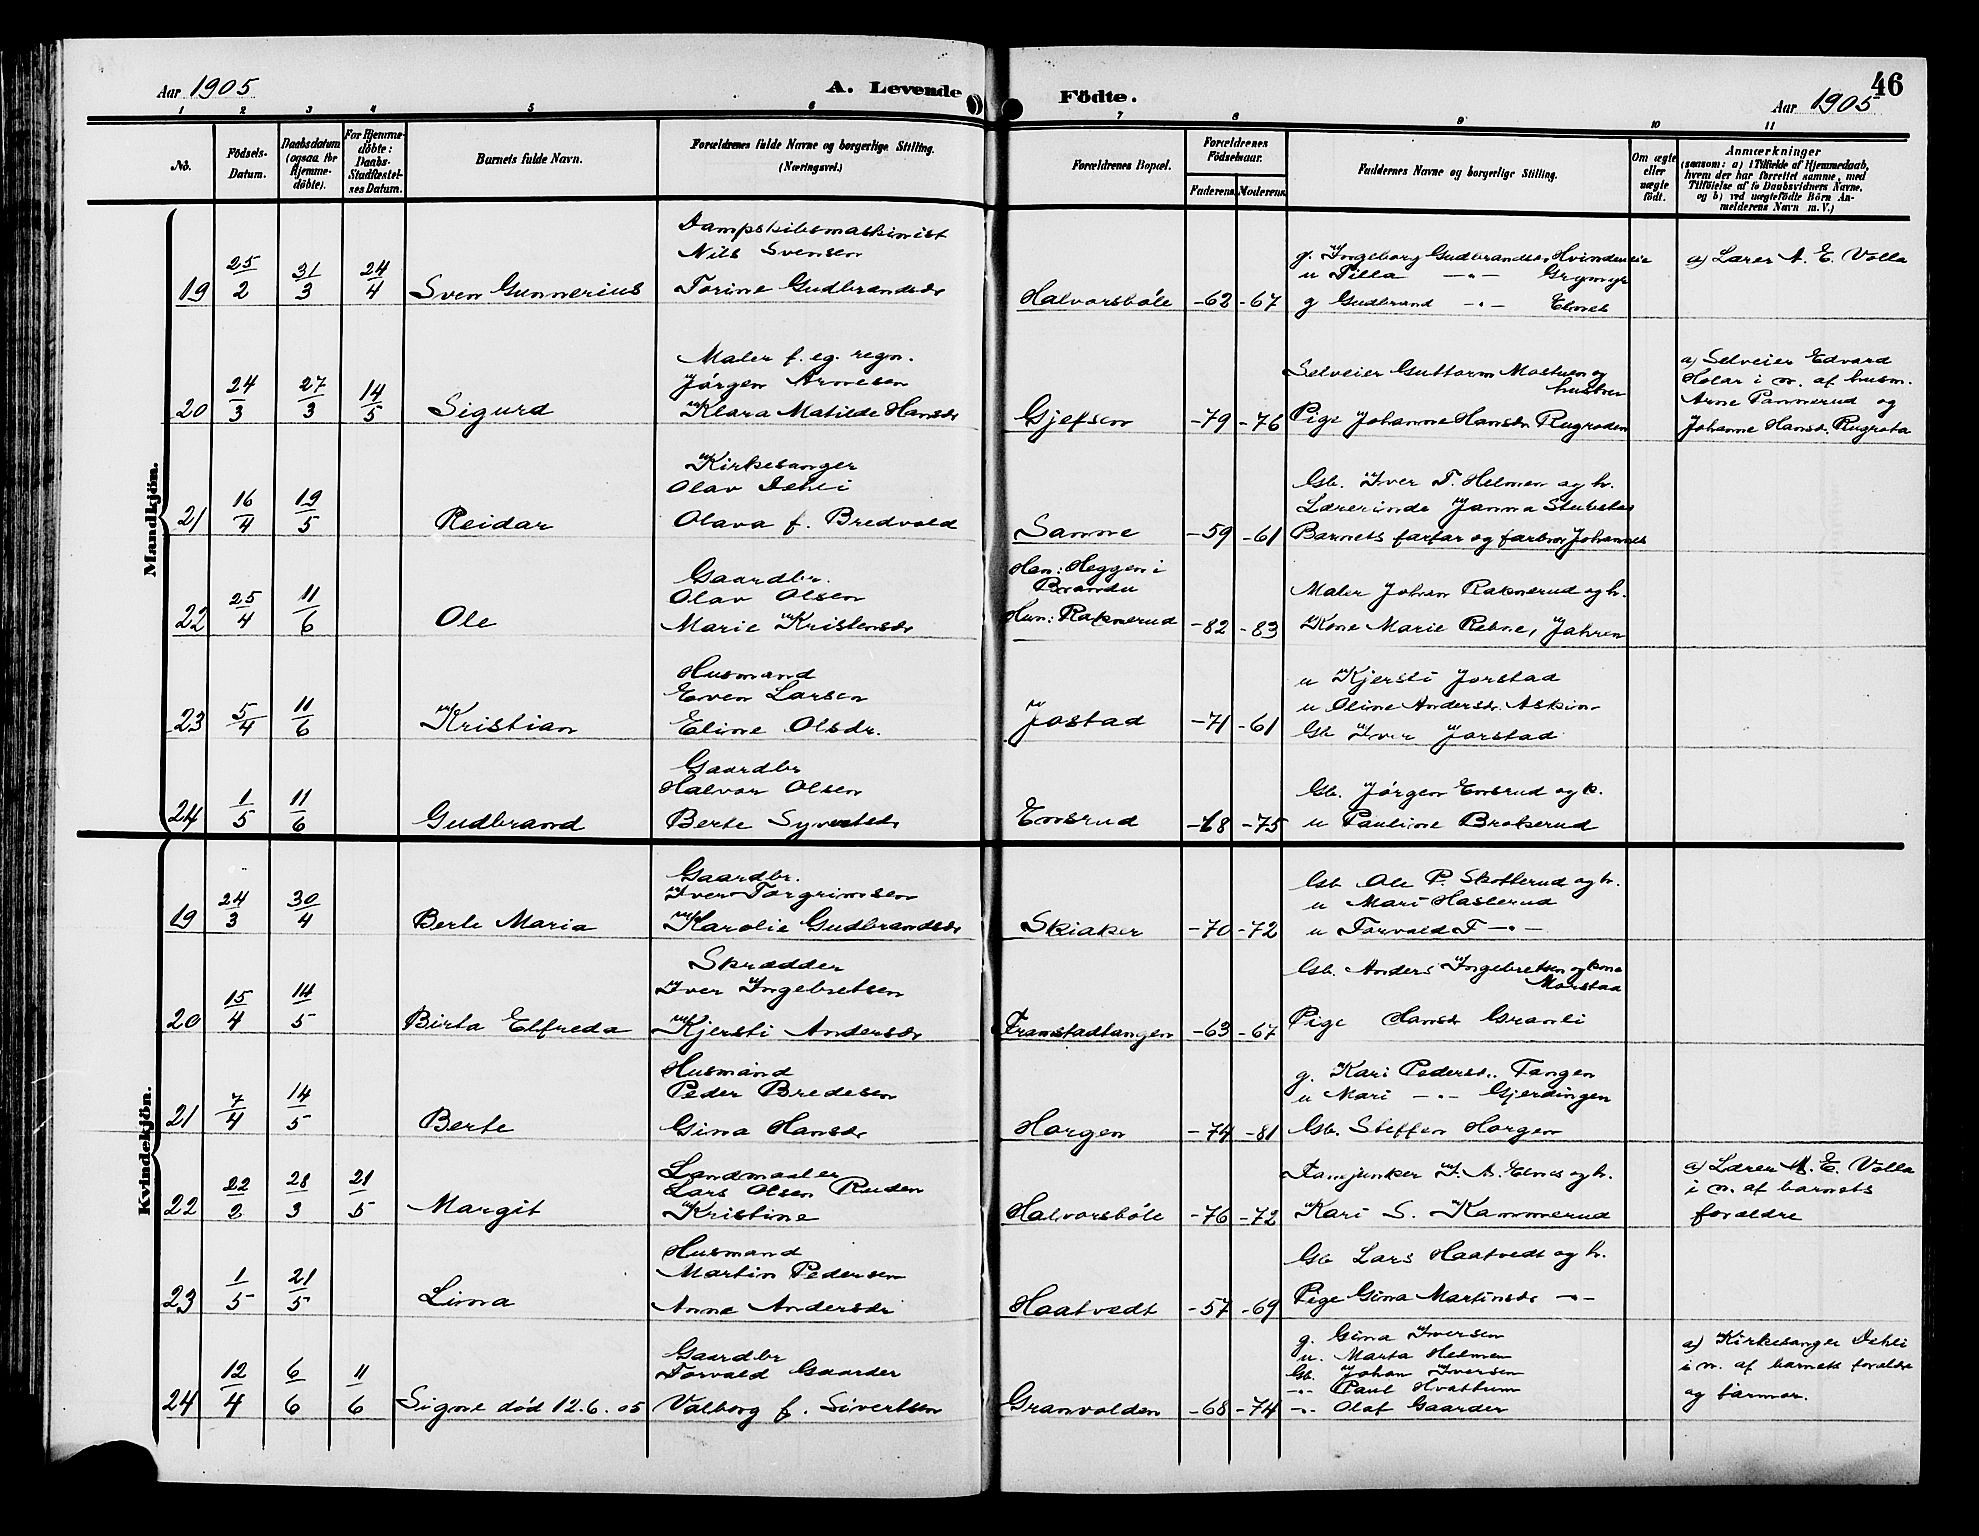 Aar 1905
A. Levende
Födte.
46
Aar 1905
1 2 3 4 5 6 7 8 9 10 11
No.
Födsels-
Datum.
Daabsdatum
(ogsaa for
Hjemme-
döbte).
For Hjemme-
döbte:
Daabs-
Stadfæstel-
ses Datum.
Barnets fulde Navn.
Forældrenes fulde Navne og borgerlige Stilling.
(Næringsvei.)
Forældrenes Bopæl.
Forældrenes
Födselsaar.
Faderens. Moderens.
Faddernes Navne og borgerlige Stilling.
Om ægte
eller
uægte
födt.
Anmærkninger
(saasom: a) i Tilfælde af Hjemmedaab,
hvem der har forrettet samme, med
Tilföielse af to Daabsvidners Navne.
og b) ved uægtefödte Börn An-
melderens Navn m. V.)
Mandkjön.
19 25/2 31/3 24/4 Sven Gunnerius
Dampskibsmaskinist
Nils Svensen
Torine Gudbrandsdr
Halvorsböle -62 -67
g. Ingeborg Gudbrandsdr Hvindeneie
u Tilla -"- Grymyr
g Gudbrand -"- Elnes
a) Lærer A. E. Volla
20 24/3 27/3 14/5 Sigurd
Maler f. eg. regn.
Jörgen Arnesen
Klara Matilde Hansdr
Gjefsen -79 -76
Selveier Guttorm Mostuen og
hustru
Pige Johanne Hansdr Rugroden
a) Selveier Edvard
Holar i n. af husm.
Arne Pammerud og
Johanne Hansd. Rugrota
21 16/4 19/5 Reidar
Kirkesanger
Olav Dehli
Olava f. Bredvold
Sanne -59 -61
Gb. Iver T. Helmen og h.
Lærerinde Janna Stubstad
Barnets farfar og farbror Johannes
22 25/4 11/6 Ole
Gaardbr.
Olav Olsen
Marie Kristensdr
Han: Heggen i
Brandu
Hun: Raknerud -82 -83
Maler Johan Raknerud og h.
Kone Marie Rekne, Jahren
23 5/4 11/6 Kristian
Husmand
Even Larsen
Eline Olsdr.
Jostad -71 -61
u Kjersti Jorstad
u Oline Andersdr. Askim
Gb Iver Jorstad
24 1/5 11/6 Gudbrand
Gaardbr
Halvor Olsen
Berte Syvestdr
Ensrud -68 -75
Gb. Jörgen Ensrud og k.
u Pauline Brokerud
Kvindekjön.
19 24/3 30/4 Berte Maria
Gaardbr.
Iver Torgrimsen
Karolie Gudbrandsdr
Skiaker -70 -72
Gb. Ole P. Skotterud og h.
u Mari Haslerud
u Torvald T -"-
20 15/4 14/5 Birta Elfreda
Skrædder
Iver Ingebretsen
Kjersti Andersdr
Framstadtangen -63 -67
Gb. Anders Ingebretsen og kone
Morstad
Pige Hansdr Granli
21 7/4 14/5 Berte
Husmand
Peder Bredesen
Gina Hansdr
Horgen -74 -81
g. Kari Pedersd. Tangen
u Mari -"- Gjerdingen
Gb. Steffen Horgen
22 22/2 28/3 21/5 Margit
Landmaaler
Lars Olsen Ruden
Kristine
Halvorsböle -76 -72
Fanjunker I. A. Elnes og h.
Kari S. Kammerud
a) Lærer A. E. Volla
i n. af barnets
forældre
23 1/5 21/5 Lina
Husmand
Martin Pedersen
Anne Andersdr
Haatvedt -57 -69
Gb Lars Haatvedt og h.
Pige Gina Martinsdr -"-
24 12/4 6/6 11/6 Signe död 12.6.05
Gaardbr
Torvald Gaarder
Valborg f. Sivertsen
Granvolden -68 -74
g. Gina Iversen
u. Marta Helmen
Gb. Johan Iversen
-"- Paul Hvattum
-"- Olaf Gaarder
a) Kirkesanger Dehli
i n. af barnets forældre
og farmor.